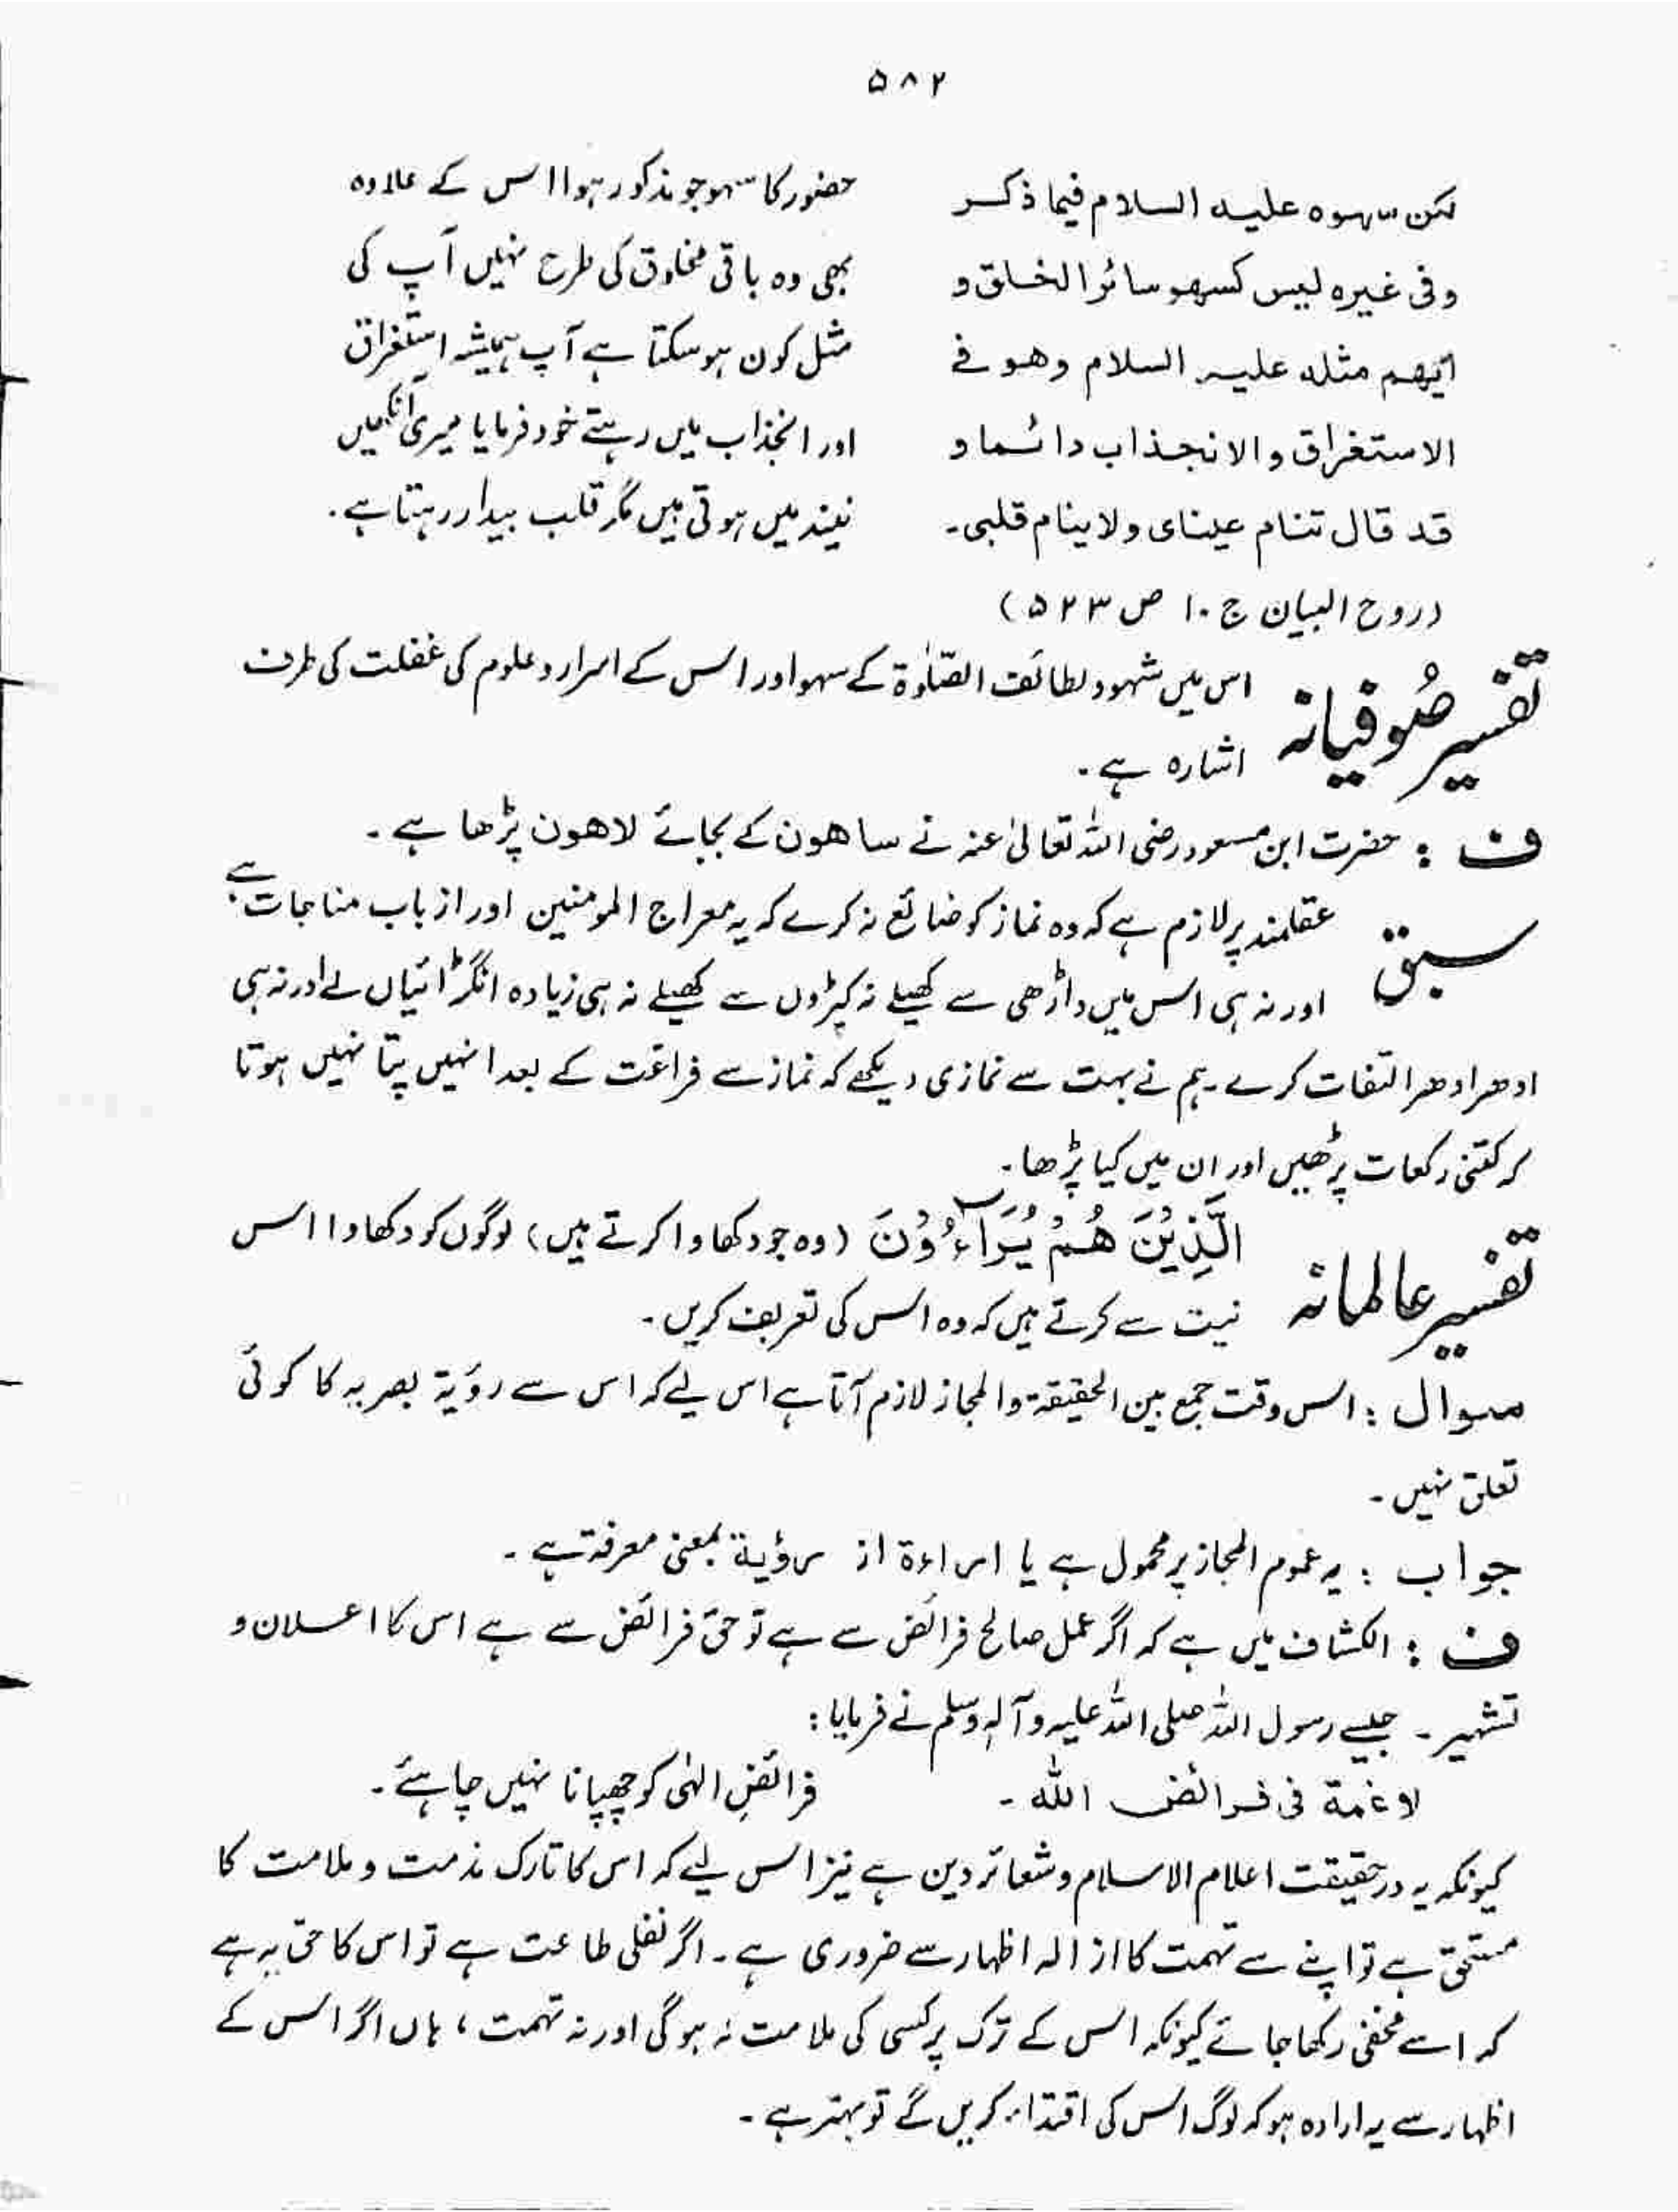 ۵۸۲
لکن سہوہ علیہ السلام فیما ذکر
وفی غیرہ لیس کسھو سائر الخلق و
ایھم مثلہ علیہ السلام وھو فے
الاستغراق والانجذاب دائما و
قد قال تنام عینای ولاینام قلبی۔
حضور کا سہو جو مذکور ہوا اس کے علاوہ
بھی وہ باقی مخلوق کی طرح نہیں آپ کی
مثل کون ہو سکتا ہے آپ ہمیشہ استغراق
اور انجذاب میں رہتے خود فرمایا میری آنکھیں
نیند میں ہوتی ہیں مگر قلب بیدار رہتا ہے۔
(روح البیان ج ۱۰ ص ۵۲۳)
تفسیر صُوفیانہ اس میں شہود لطائف الصّلوٰۃ کے سہو اور اس کے اسرار و علوم کی غفلت کی طرف
اشارہ ہے۔
ف : حضرت ابن مسعود رضی اللہ تعالیٰ عنہ نے ساھون کے بجائے لاھون پڑھا ہے۔
سبق عقلمند پر لازم ہے کہ وہ نماز کو ضائع نہ کرے کہ یہ معراج المومنین اور از باب مناجات ہے
اور نہ ہی اس میں داڑھی سے کھیلے نہ کپڑوں سے کھیلے نہ ہی زیادہ انگڑائیاں لے اور نہ ہی
ادھر ادھر التفات کرے۔ ہم نے بہت سے نمازی دیکھے کہ نماز سے فراغت کے بعد انہیں پتا نہیں ہوتا
کہ کتنی رکعات پڑھیں اور ان میں کیا پڑھا۔
تفسیر عالمانہ الَّذِیْنَ هُمْ یُرَآءُوْنَ (وہ جو دکھاوا کرتے ہیں) لوگوں کو دکھاوا اس
نیت سے کرتے ہیں کہ وہ اس کی تعریف کریں۔
سوال : اس وقت جمع بین الحقیقۃ والمجاز لازم آتا ہے اس لیے کہ اس سے رؤیۃ بصریہ کا کوئی
تعلق نہیں۔
جواب : یہ عموم المجاز پر محمول ہے یا اراءۃ از رؤیۃ بمعنی معرفۃ ہے۔
ف : الکشاف میں ہے کہ اگر عمل صالح فرائض سے ہے تو حق فرائض سے ہے اس کا اعلان و
تشہیر۔ جیسے رسول اللہ صلی اللہ علیہ وآلہٖ وسلم نے فرمایا :
لا غمة فی فرائض الله۔ فرائضِ الہٰی کو چھپانا نہیں چاہئے۔
کیونکہ یہ درحقیقت اعلام الاسلام و شعائر دین ہے نیز اس لیے کہ اس کا تارک مذمت و ملامت کا
مستحق ہے تو اپنے سے تہمت کا ازالہ اظہار سے ضروری ہے۔ اگر نفلی طاعت ہے تو اس کا حق یہ ہے
کہ اسے مخفی رکھا جائے کیونکہ اس کے ترک پر کسی کی ملامت نہ ہوگی اور نہ تہمت، ہاں اگر اس کے
اظہار سے یہ ارادہ ہو کہ لوگ اس کی اقتداء کریں گے تو بہتر ہے۔